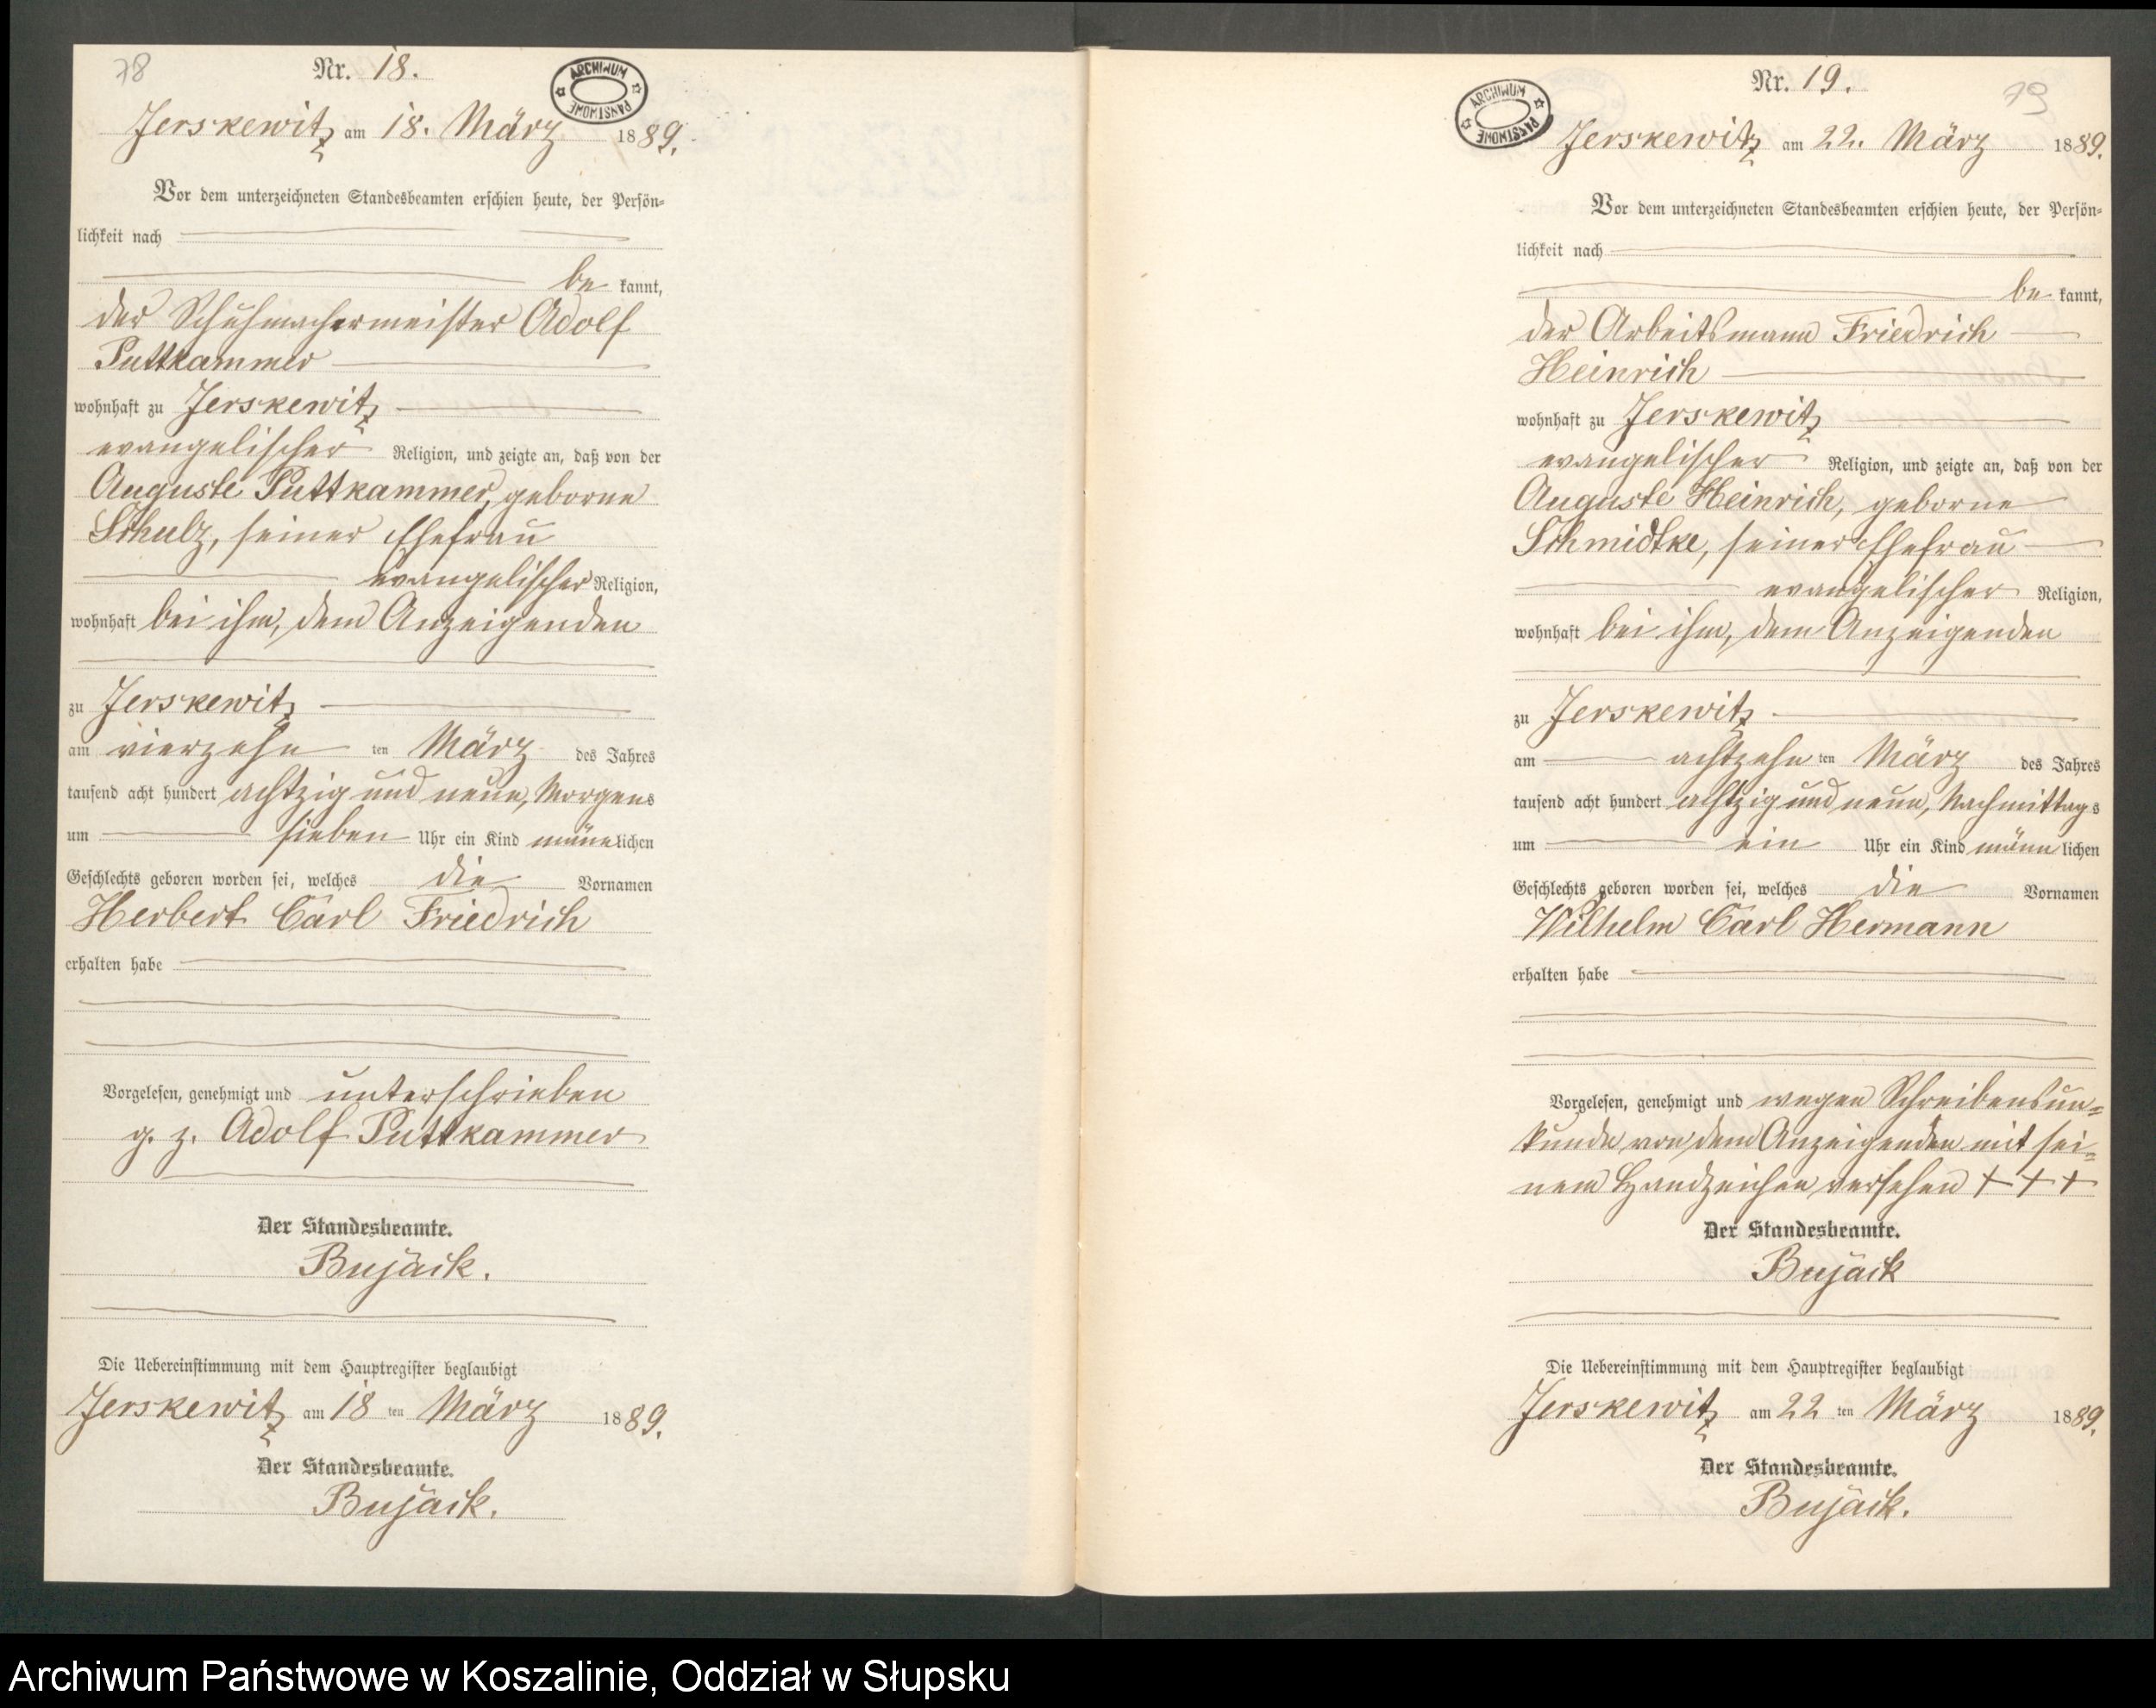 78
Nr. 18.
ARCHIWUM PAŃSTWOWE
Jerskewitz am 18. März 1889.
Vor dem unterzeichneten Standesbeamten erschien heute, der Persön-
lichkeit nach
be kannt,
der Schuhmachermeister Adolf
Puttkammer
wohnhaft zu Jerskewitz
evangelischer Religion, und zeigte an, daß von der
Auguste Puttkammer, geborne
Schulz, seiner Ehefrau
evangelischer Religion,
wohnhaft bei ihm, dem Anzeigenden
zu Jerskewitz
am vierzehn ten März des Jahres
tausend acht hundert achtzig und neun, Morgens
um sieben Uhr ein Kind männlichen
Geschlechts geboren worden sei, welches die Vornamen
Herbert Carl Friedrich
erhalten habe
Vorgelesen, genehmigt und unterschrieben
g. z. Adolf Puttkammer
Der Standesbeamte.
Bujack.
Die Uebereinstimmung mit dem Hauptregister beglaubigt
Jerskewitz am 18 ten März 1889.
Der Standesbeamte.
Bujack.
79
Nr. 19.
ARCHIWUM PAŃSTWOWE
Jerskewitz am 22. März 1889.
Vor dem unterzeichneten Standesbeamten erschien heute, der Persön-
lichkeit nach
be kannt,
der Arbeitsmann Friedrich
Heinrich
wohnhaft zu Jerskewitz
evangelischer Religion, und zeigte an, daß von der
Auguste Heinrich, geborne
Schmidtke, seiner Ehefrau
evangelischer Religion,
wohnhaft bei ihm, dem Anzeigenden
zu Jerskewitz
am achtzehn ten März des Jahres
tausend acht hundert achtzig und neun, Nachmittags
um ein Uhr ein Kind männlichen
Geschlechts geboren worden sei, welches die Vornamen
Wilhelm Carl Hermann
erhalten habe
Vorgelesen, genehmigt und wegen Schreibensun-
kunde von dem Anzeigenden mit sei-
nem Handzeichen versehen + + +
Der Standesbeamte.
Bujack
Die Uebereinstimmung mit dem Hauptregister beglaubigt
Jerskewitz am 22 ten März 1889.
Der Standesbeamte.
Bujack.
Archiwum Państwowe w Koszalinie, Oddział w Słupsku